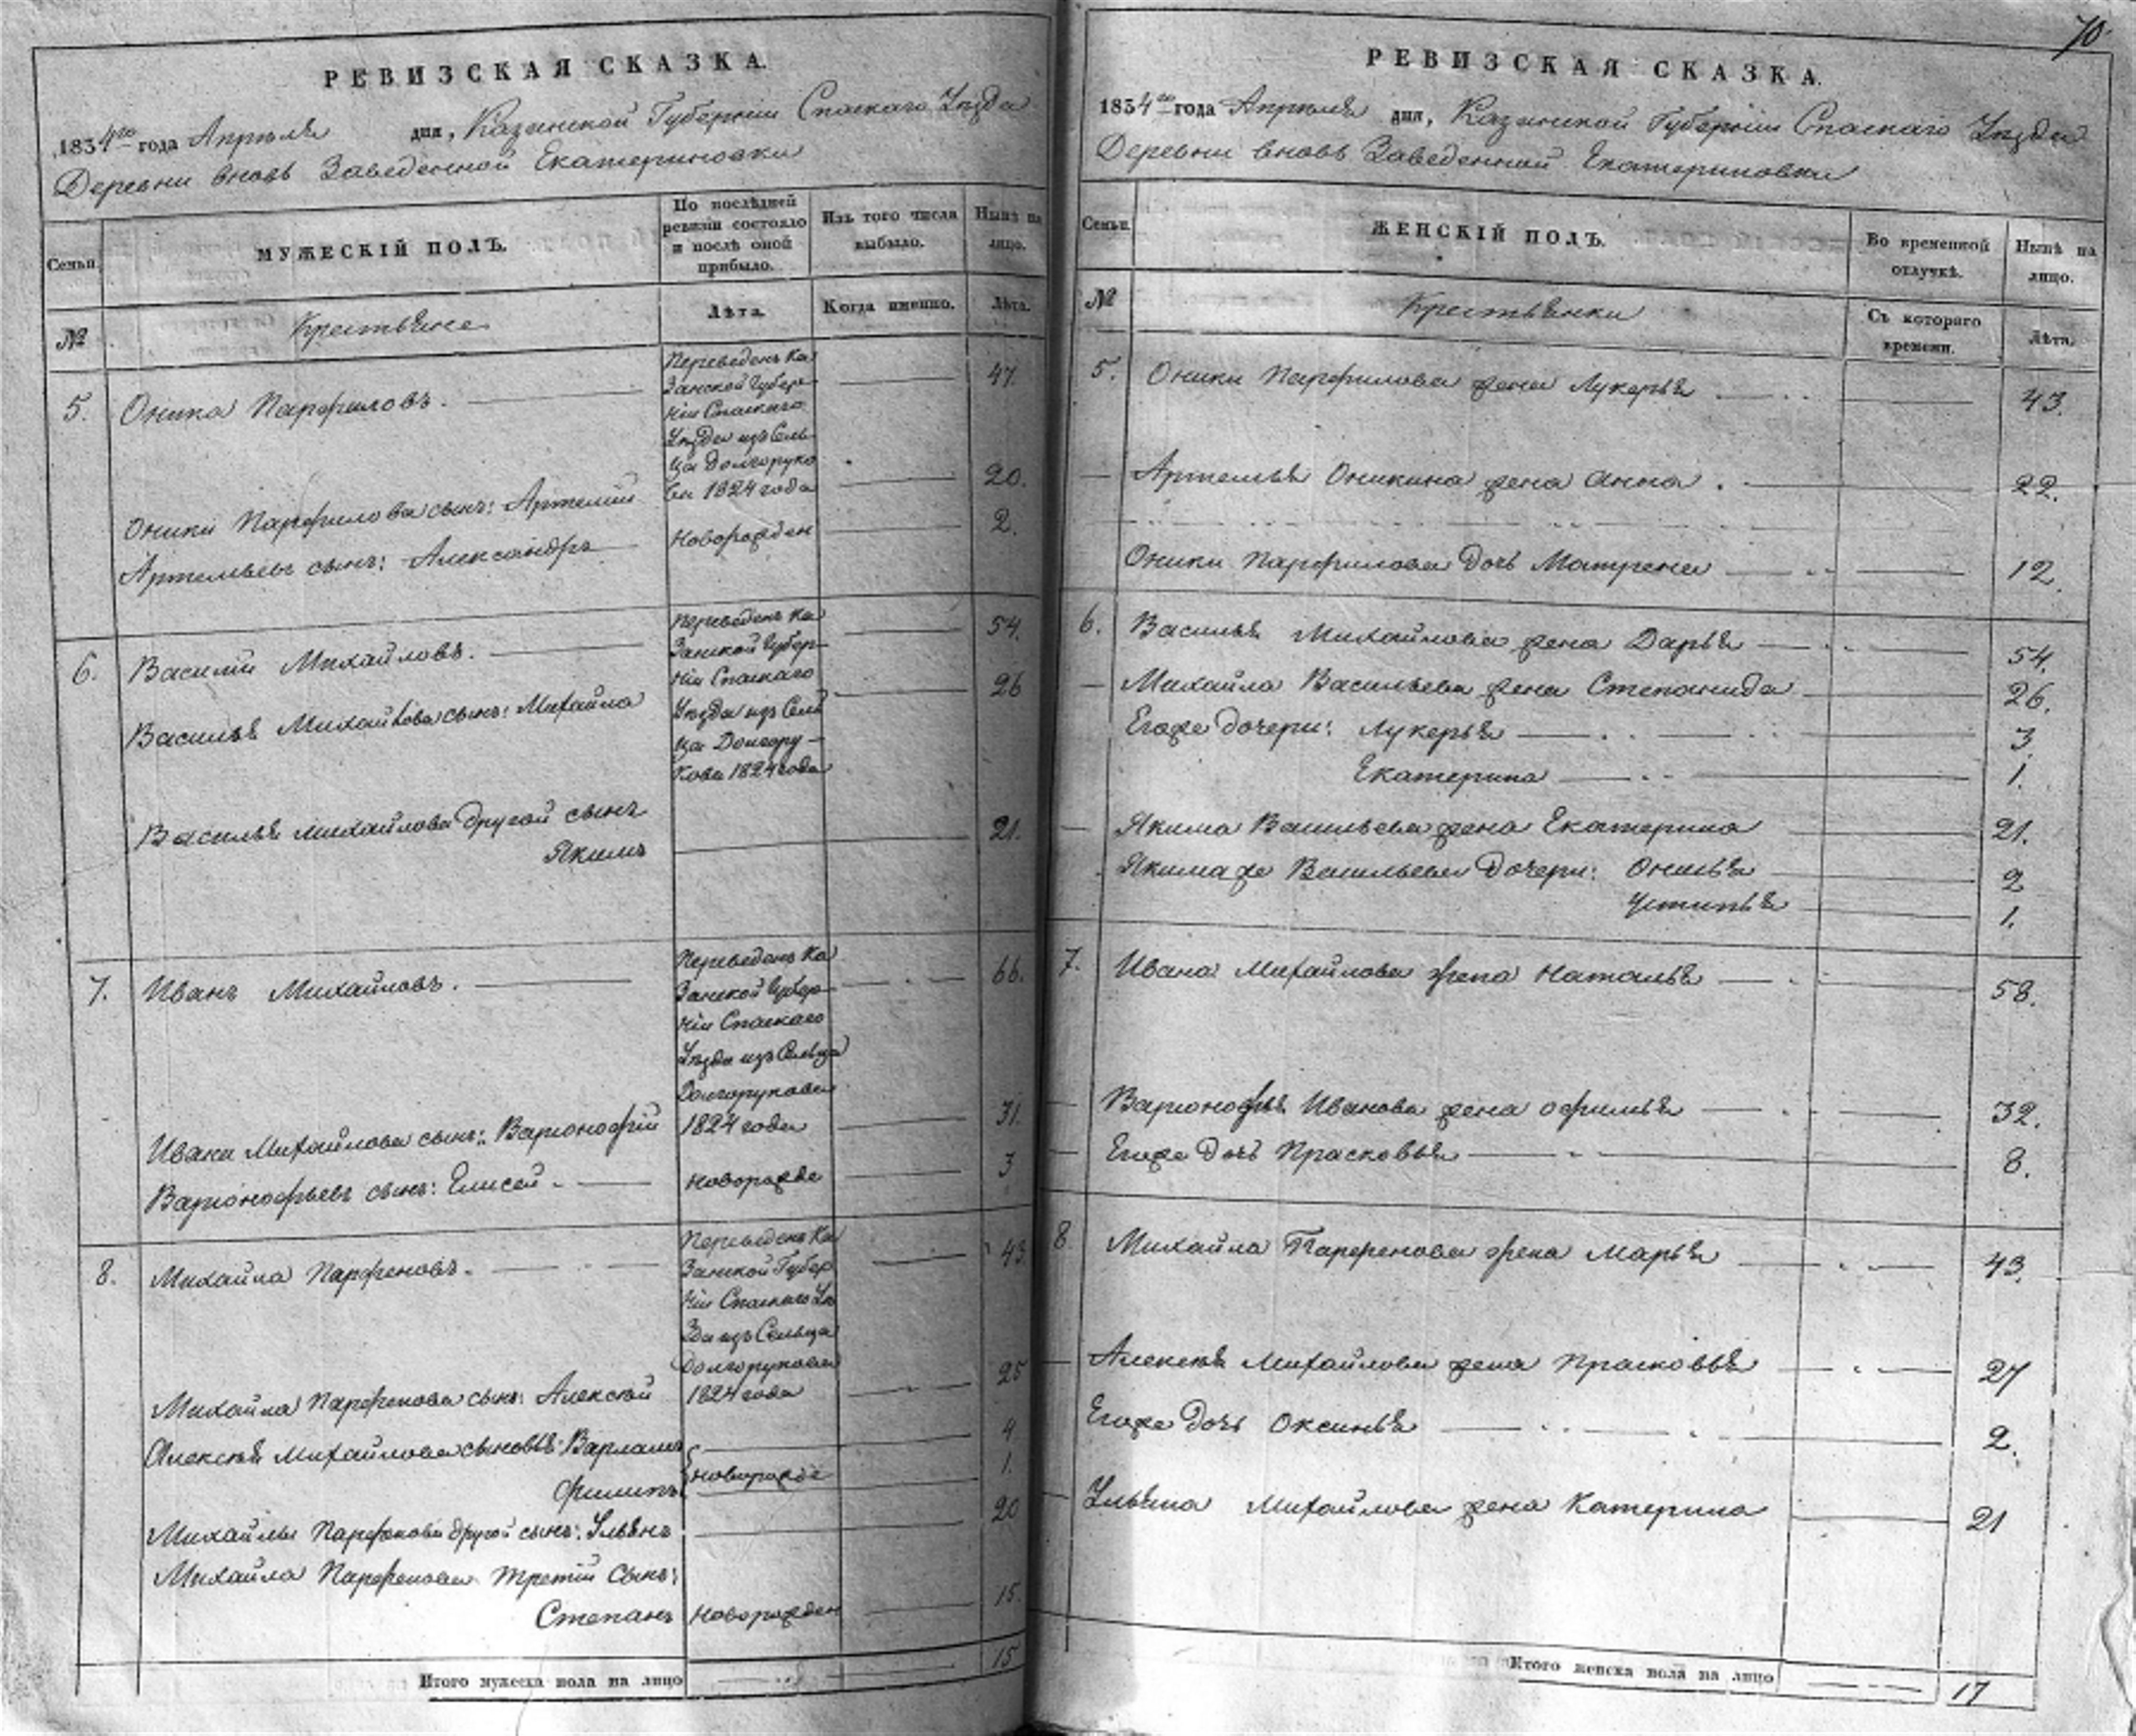 РЕВИЗСКАЯ СКАЗКА.
1834го года Апреля дня, Казанской Губернiи Спаскаго Уезда
Деревни вновь Заведенной Екатериновки
Семьи. МУЖЕСКIЙ ПОЛЪ. По послѣдней ревизiи состояло и послѣ оной прибыло. Изъ того числа выбыло. Нынѣ на лицо.
№ Крестьяне Лѣта. Когда именно. Лѣта.
5. Оника Парфиловъ. Переведенъ Ка 47.
занской Губер
нiи Спаскаго
Уезда изъ Сель
ца Долгоруко
ва 1824 года
Оники Парфилова сынъ: Артемiй 20.
Артемьевъ сынъ: Александръ Новорожден 2.
6. Василiй Михайловъ. Переведенъ Ка 54.
занской Губер
нiи Спаскаго
Василья Михайлова сынъ: Михайла Уезда изъ Сель 26
ца Долгору
кова 1824 года
Василья Михайлова другой сынъ
Якимъ 21.
7. Иванъ Михайловъ. Переведенъ Ка 66.
занской Губер
нiи Спаскаго
Уезда изъ Сельца
Долгорукова
Ивана Михайлова сынъ: Варфонофiй 1824 года 31.
Варфонофьевъ сынъ: Елисей новорожде 3
8. Михайла Парфеновъ. Переведенъ Ка 43.
занской Губер
нiи Спаскаго Уе
зда изъ Сельца
Долгорукова
Михайла Парфенова сынъ: Алексей 1824 года 25
Алексея Михайлова сыновья: Варламъ 4
Филипъ новорожде 1.
Михайлы Парфенова другой сынъ: Ульянъ 20
Михайла Парфенова третiй Сынъ:
Степанъ Новорожден 15
Итого мужеска пола на лицо 15
70
РЕВИЗСКАЯ СКАЗКА.
1834го года Апреля дня, Казанской Губернiи Спаскаго Уезда
Деревни вновь Заведенной Екатериновки
Семьи. ЖЕНСКIЙ ПОЛЪ. Во временной отлучкѣ. Нынѣ на лицо.
№ Крестьянки Съ котораго времени. Лѣта.
5. Оники Парфилова жена Лукерья 43.
Артемья Оникина жена Анна 22.
Оники Парфилова дочь Матрена 12
6. Василья Михайлова жена Дарья 54.
Михайла Васильева жена Степанида 26.
Егоже дочери: Лукерья 3
Екатерина 1.
Якима Васильева жена Екатерина 21.
Якима же Васильева дочери: Онисья 2
Устинья 1.
7. Ивана Михайлова жена Наталья 58.
Варфонофья Иванова жена Офимья 32.
Егоже дочь Прасковья 8.
8 Михайла Парфенова жена Марья 43.
Алексея Михайлова жена Прасковья 27
Егоже дочь Оксинья 2.
Ульяна Михайлова жена Катерина 21
Итого женска пола на лицо 17